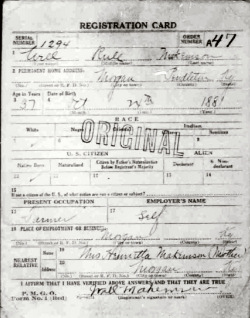 REGISTRATION CARD
SERIAL NUMBER 1294 ORDER NUMBER A47
1 Will Makemson
2 PERMANENT HOME ADDRESS:
Morgan Pendleton Ky
Age in Years Date of Birth
3 37 4 24th 1881
RACE
White Negro Oriental Indian
ORIGINAL
U. S. CITIZEN ALIEN
Native Born Naturalized Citizen by Father's Naturalization Before Registrant's Majority Declarant Non-declarant
If not a citizen of the U. S., of what nation are you a citizen or subject?
PRESENT OCCUPATION EMPLOYER'S NAME
Farmer Self
PLACE OF EMPLOYMENT OR BUSINESS:
Morgan Ky
NEAREST RELATIVE
Name Mrs. Makemson (Mother)
Address Morgan Ky
I AFFIRM THAT I HAVE VERIFIED ABOVE ANSWERS AND THAT THEY ARE TRUE
P. M. G. O.
Form No. 1 (Red) Will Makemson
(Registrant's signature or mark)